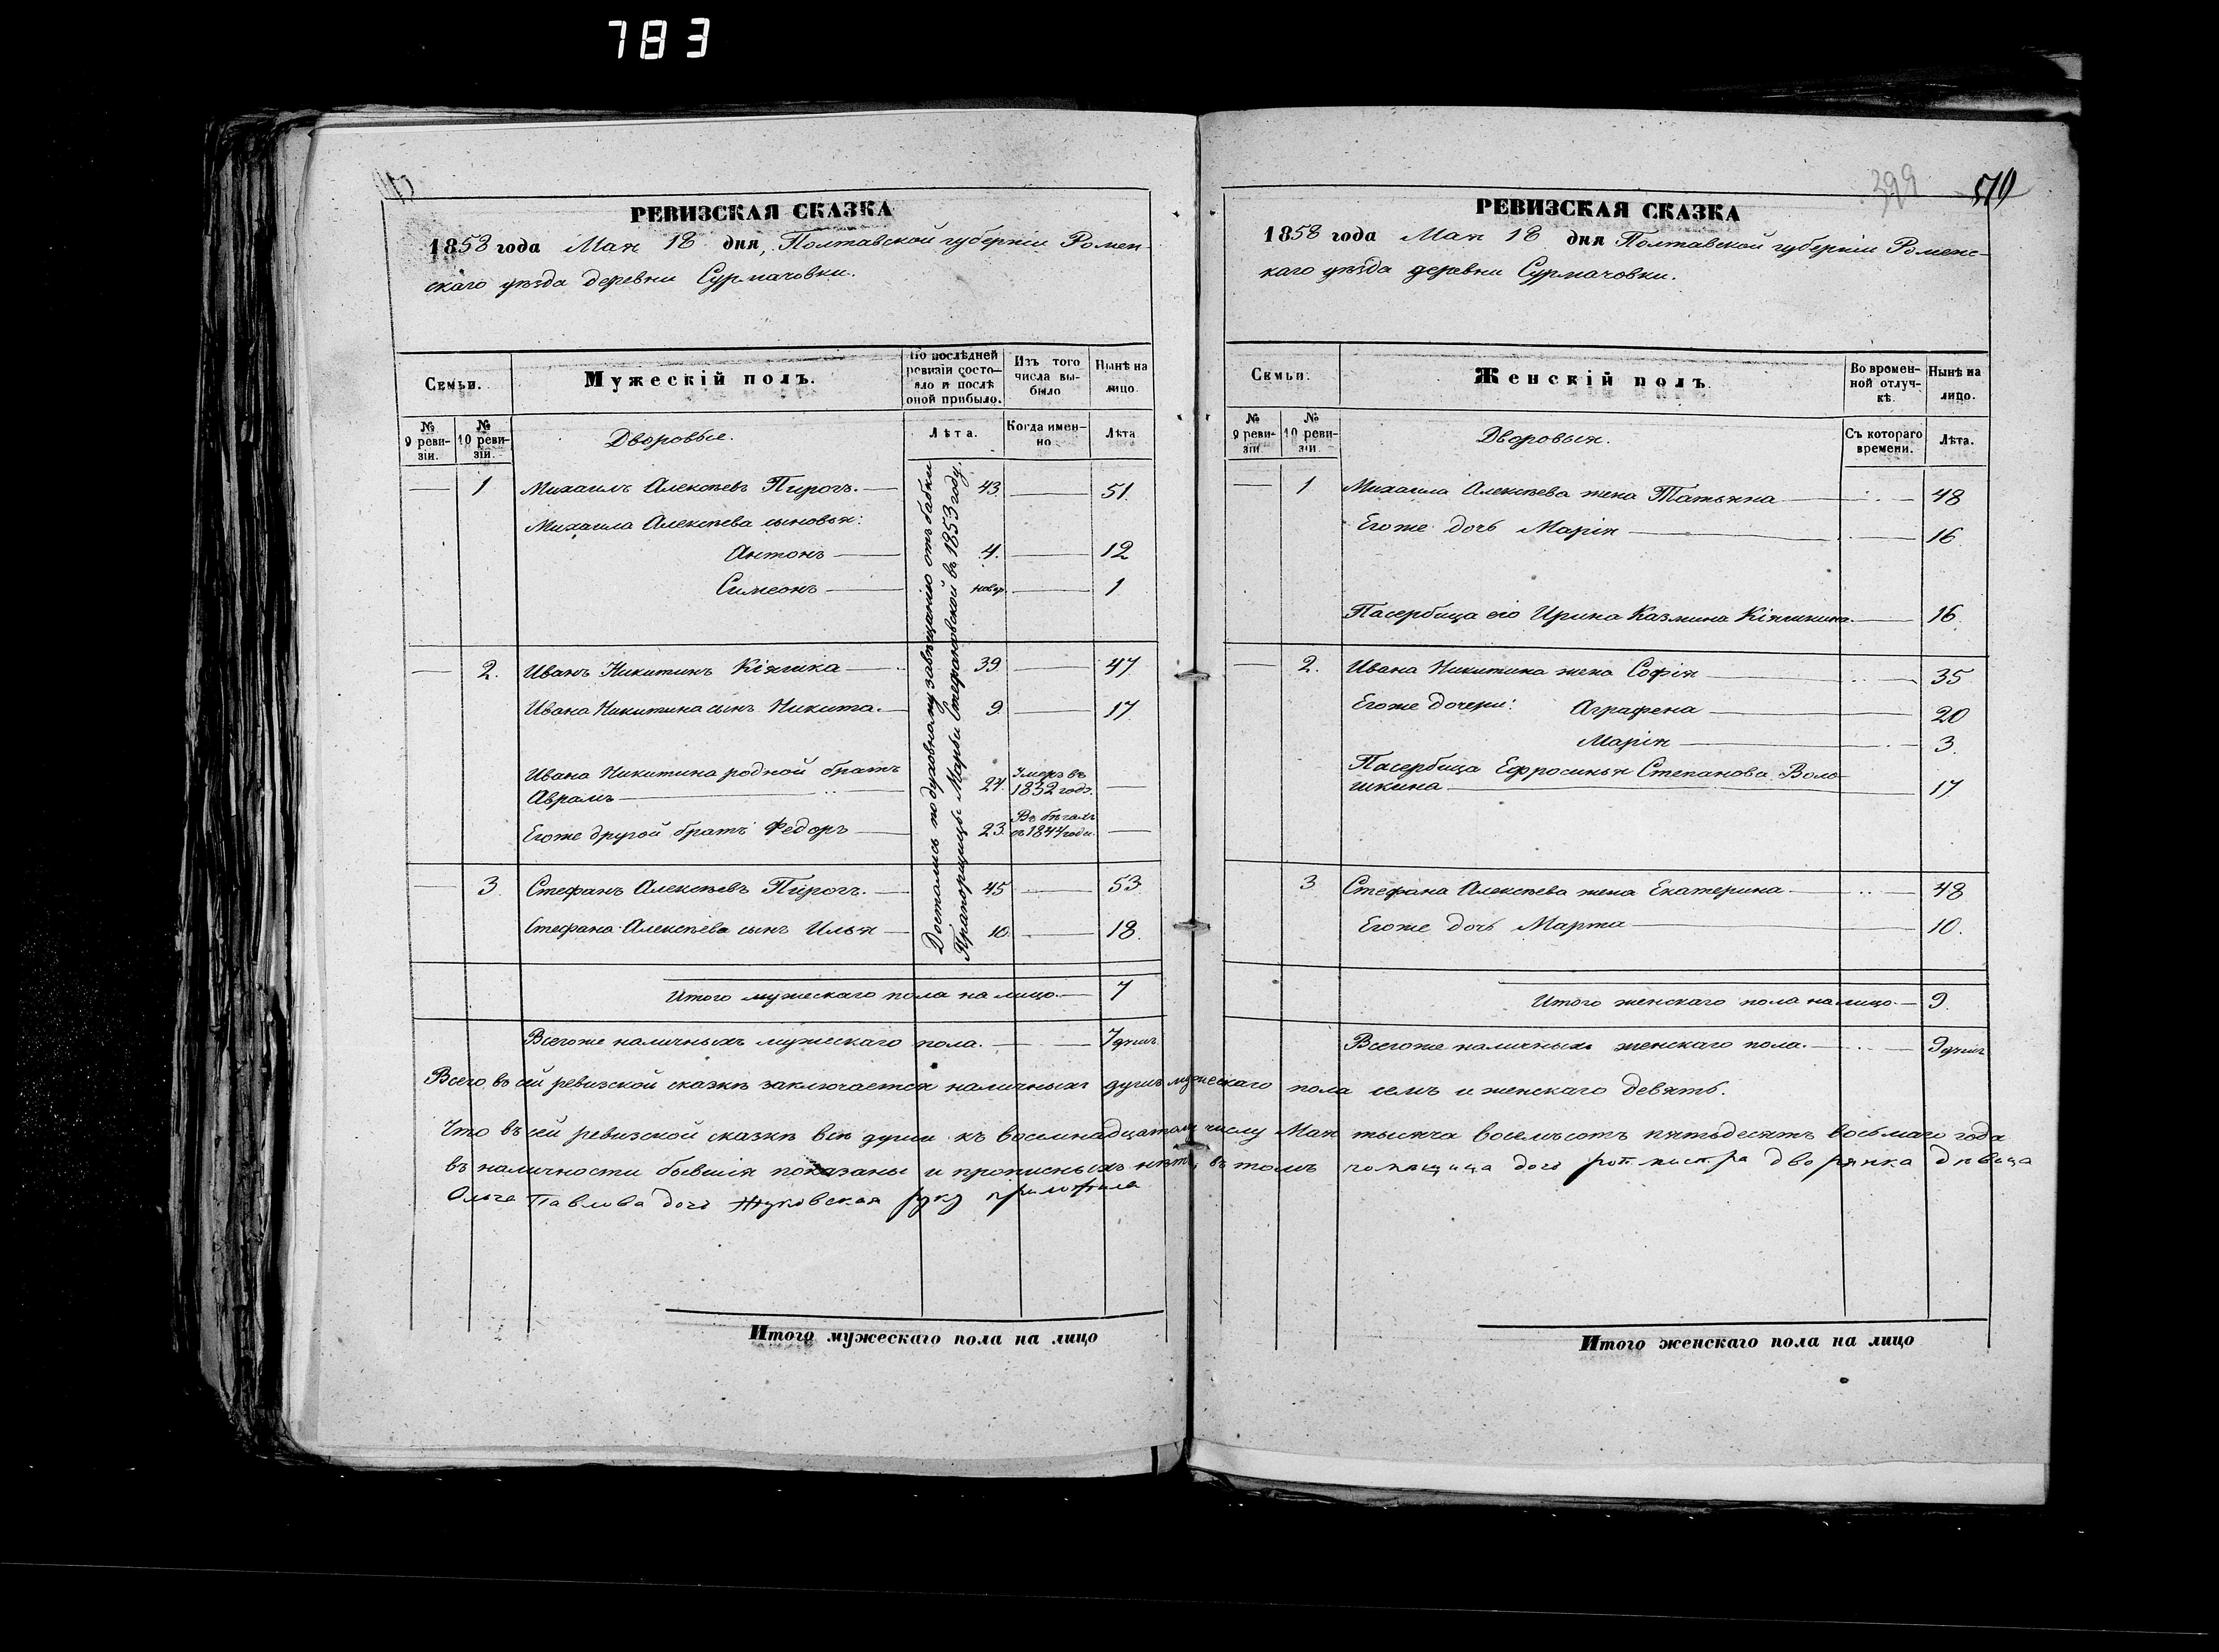 783
РЕВИЗСКАЯ СКАЗКА
1858 года Мая 18 дня, Полтавской губерніи Ромен-
скаго уѣзда деревни Сурмачовки.
Семьи.
Мужескій полъ.
По послѣдней ревизіи состо-
яло и послѣ оной прибыло.
Изъ того числа вы-
было
Нынѣ на лицо
№ 9 реви-
зіи.
№ 10 реви-
зіи.
Дворовые.
Лѣта.
Когда имен-
но
Лѣта
Достались по духовному завѣщанію отъ бабки
Прапорщицы Марьи Стефановской въ 1853 году.
— 1 Михаилъ Алексѣевъ Пирогъ. — 43. — 51.
Михаила Алексѣева сыновья:
Антонъ — 4. — 12
Симеонъ — новор. — 1
— 2. Иванъ Никитинъ Кіяшка — 39 — 47
Ивана Никитина сынъ Никита. — 9. — 17
Ивана Никитина родной братъ
Аврамъ — 24. Умеръ въ 1852 годѣ. —
Его же другой братъ Федоръ — 23. Въ бѣгахъ съ 1844 года. —
— 3. Стефанъ Алексѣевъ Пирогъ. — 45 — 53.
Стефана Алексѣева сынъ Илья — 10. — 18.
Итого мужескаго пола на лицо. — 7
Всего же наличныхъ мужескаго пола. — 7 душъ
399
510
РЕВИЗСКАЯ СКАЗКА
1858 года Мая 18 дня Полтавской губерніи Роменс-
каго уѣзда деревни Сурмачовки.
Семьи.
Женскій полъ.
Во времен-
ной отлуч-
кѣ.
Нынѣ на лицо.
№ 9 реви-
зіи.
№ 10 реви-
зіи.
Дворовыя.
Съ котораго времени.
Лѣта.
— 1 Михаила Алексѣева жена Татьяна — 48
Его же дочь Марія — 16.
Пасербица его Ирина Казмина Кіяшкина. — 16.
— 2. Ивана Никитина жена Софія — 35
Его же дочери: Аграфена — 20
Марія — 3.
Пасербица Ефросинья Степанова Воло-
шкина — 17
3 Стефана Алексѣева жена Екатерина — 48
Его же дочь Марта — 10.
Итого женскаго пола на лицо. — 9.
Всего же наличныхъ женскаго пола. — 9 душъ
Всего въ сей ревизской сказкѣ заключается наличныхъ душъ мужескаго пола семь и женскаго девять.
Что въ сей ревизской сказкѣ всѣ души къ восемнадцатому числу Мая тысяча восемьсотъ пятьдесятъ восьмаго года
въ наличности бывшія показаны и прописныхъ нѣтъ, въ томъ помѣщица дочь ротмистра дворянка дѣвица
Ольга Павлова дочь Жуковская руку приложила
Итого мужескаго пола на лицо
Итого женскаго пола на лицо